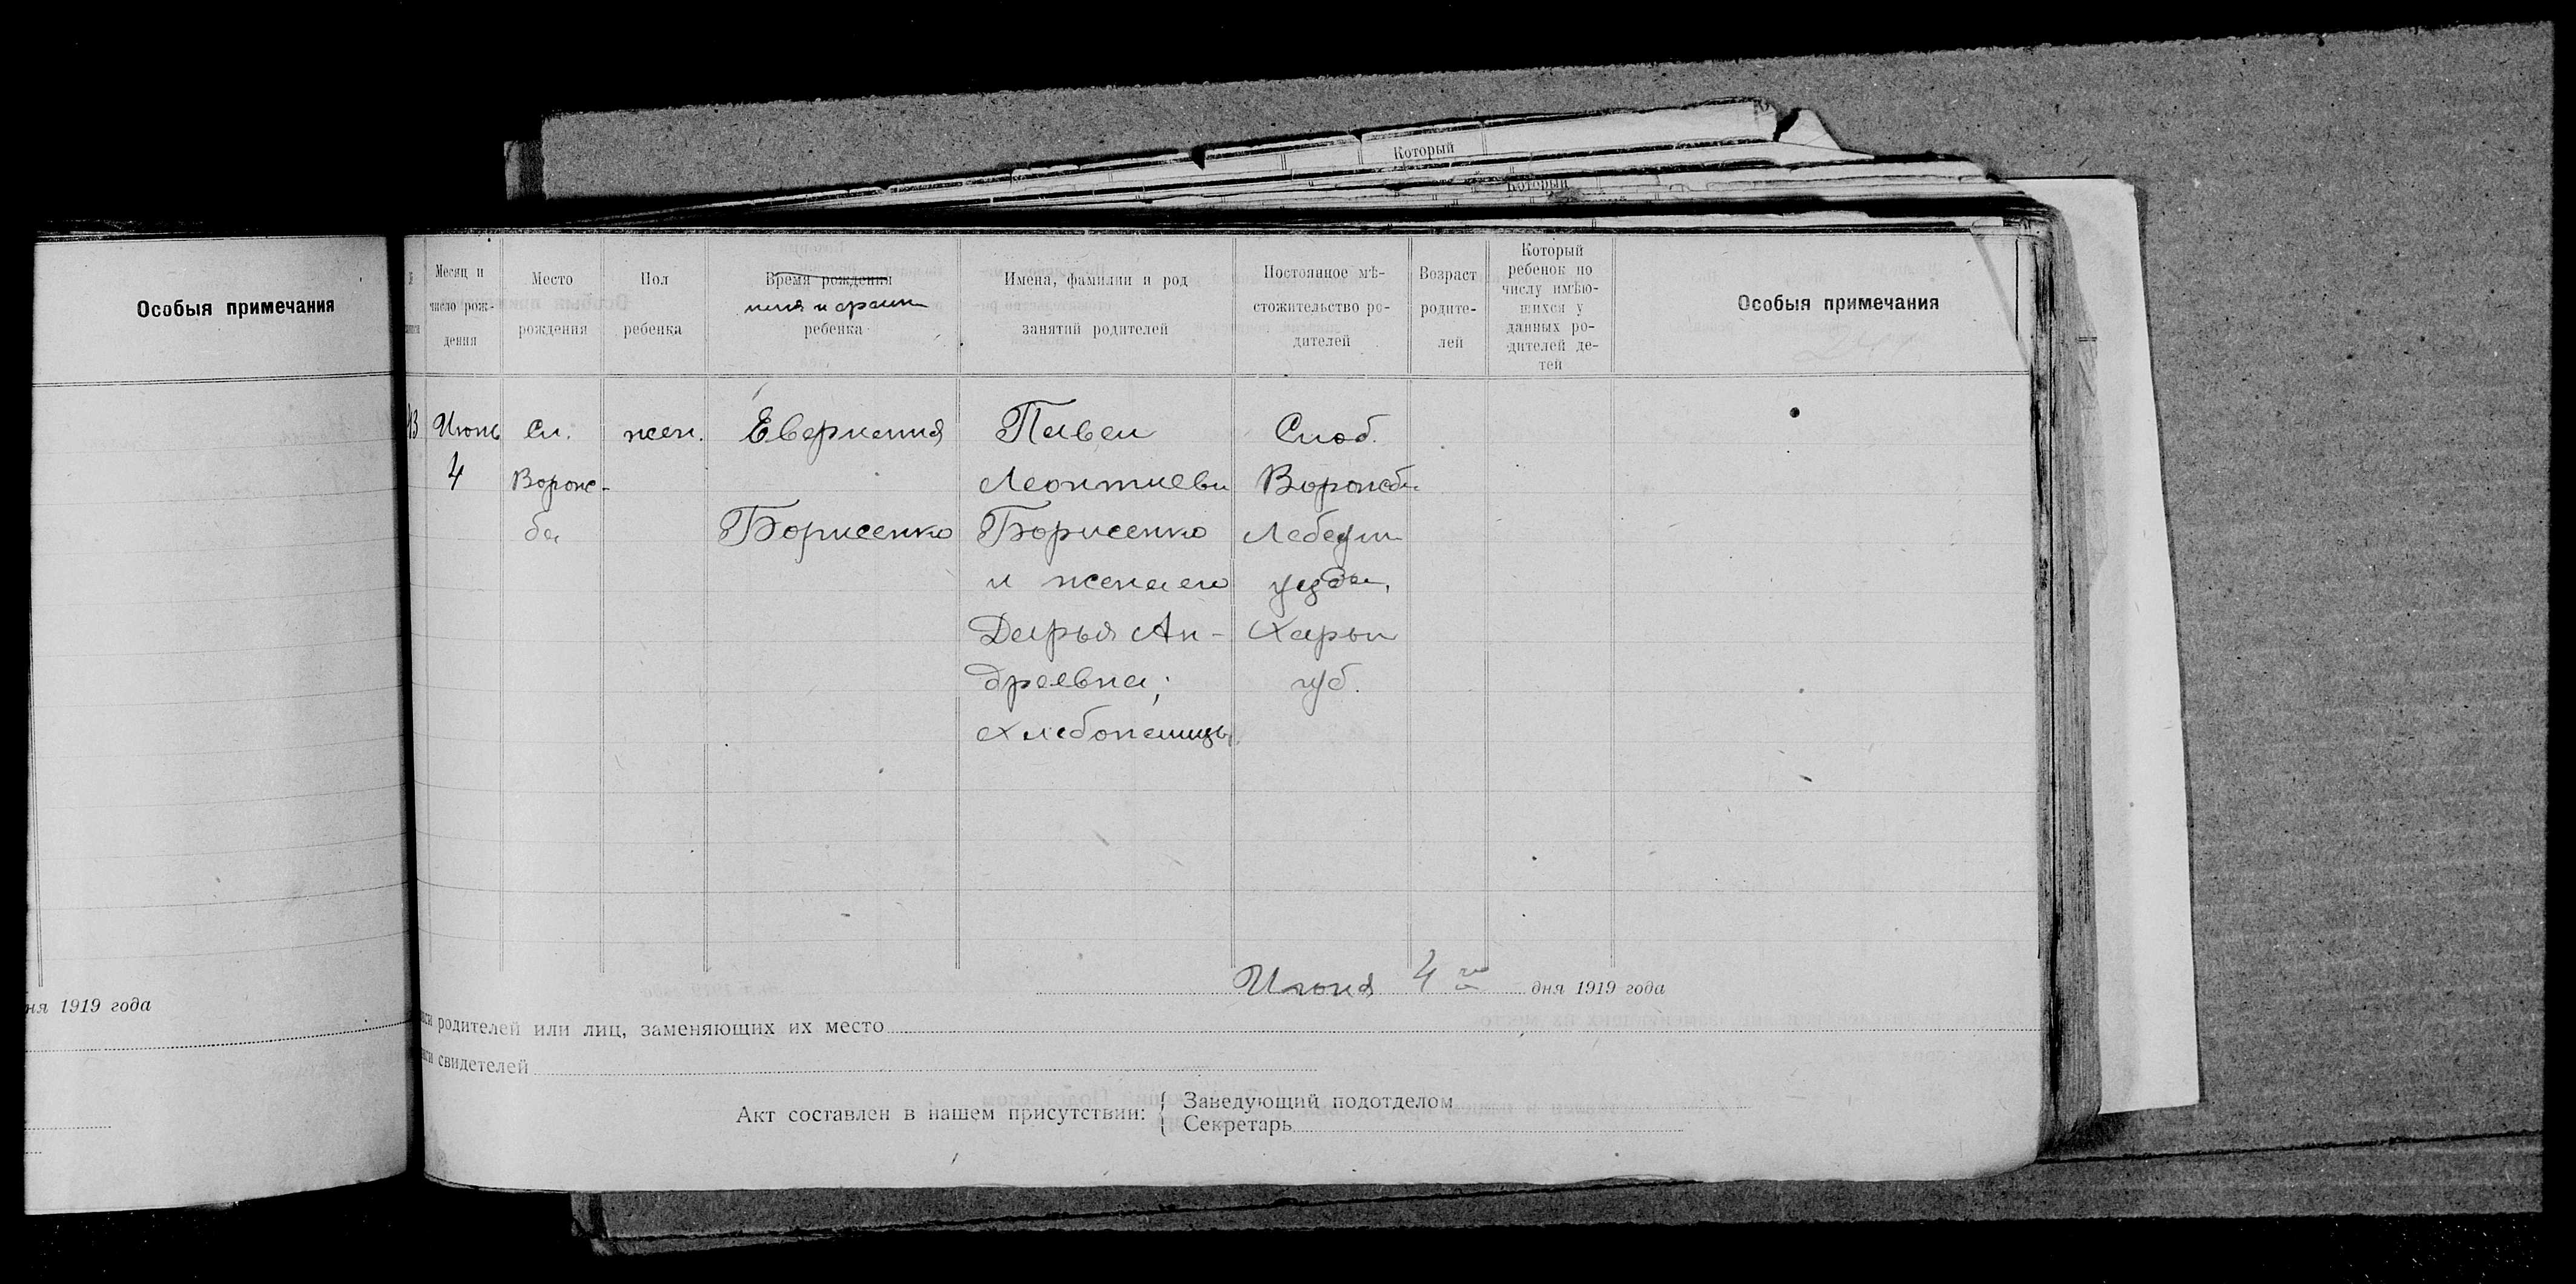 Который
Который
Особыя примечания
ня 1919 года
Месяц и число рождения
Место рождения
Пол ребенка
Время рождения
имя и фамил
ребенка
Имена, фамилии и род занятий родителей
Постоянное мѣстожительство родителей
Возраст родителей
Который ребенок по числу имѣющихся у данных родителей детей
Особыя примечания
13 Июнь Сл. жен. Евгения Павел Слоб.
4 Ворож- Леонтиеви Ворожбы
ба Борисенко Борисенко Лебедин
и жена его уезда,
Дарья Ан- Харьк
дреевна; губ.
хлебопашцы.
Июня 4го дня 1919 года
родителей или лиц, заменяющих их место
свидетелей
Акт составлен в нашем присутствии: { Заведующий подотделом
Секретарь